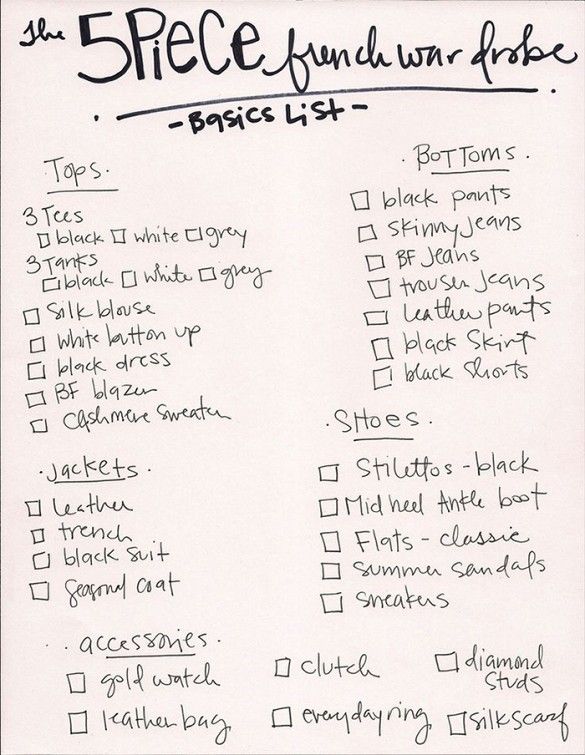 The 5 PiECE french wardrobe
- Basics List -
Tops.
3 Tees
black white grey
3 Tanks
black white grey
Silk blouse
white button up
black dress
BF blazer
Cashmere sweater
. Jackets .
leather
trench
black suit
seasonal coat
. BOTTOMS .
black pants
skinny jeans
BF Jeans
trouser jeans
leather pants
black skirt
black shorts
. SHoes .
Stilettos - black
Mid heel Ankle boot
Flats - classic
summer sandals
sneakers
. accessories .
gold watch
leather bag
clutch
everyday ring
diamond
studs
silk scarf